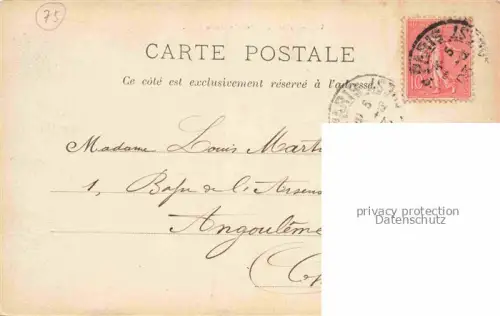 75
CARTE POSTALE
Ce côté est exclusivement réservé à l'adresse.
PARIS
PARIS
10
Madame Louis Mart
1, de l'Arsen
Angoulême
privacy protection
Datenschutz